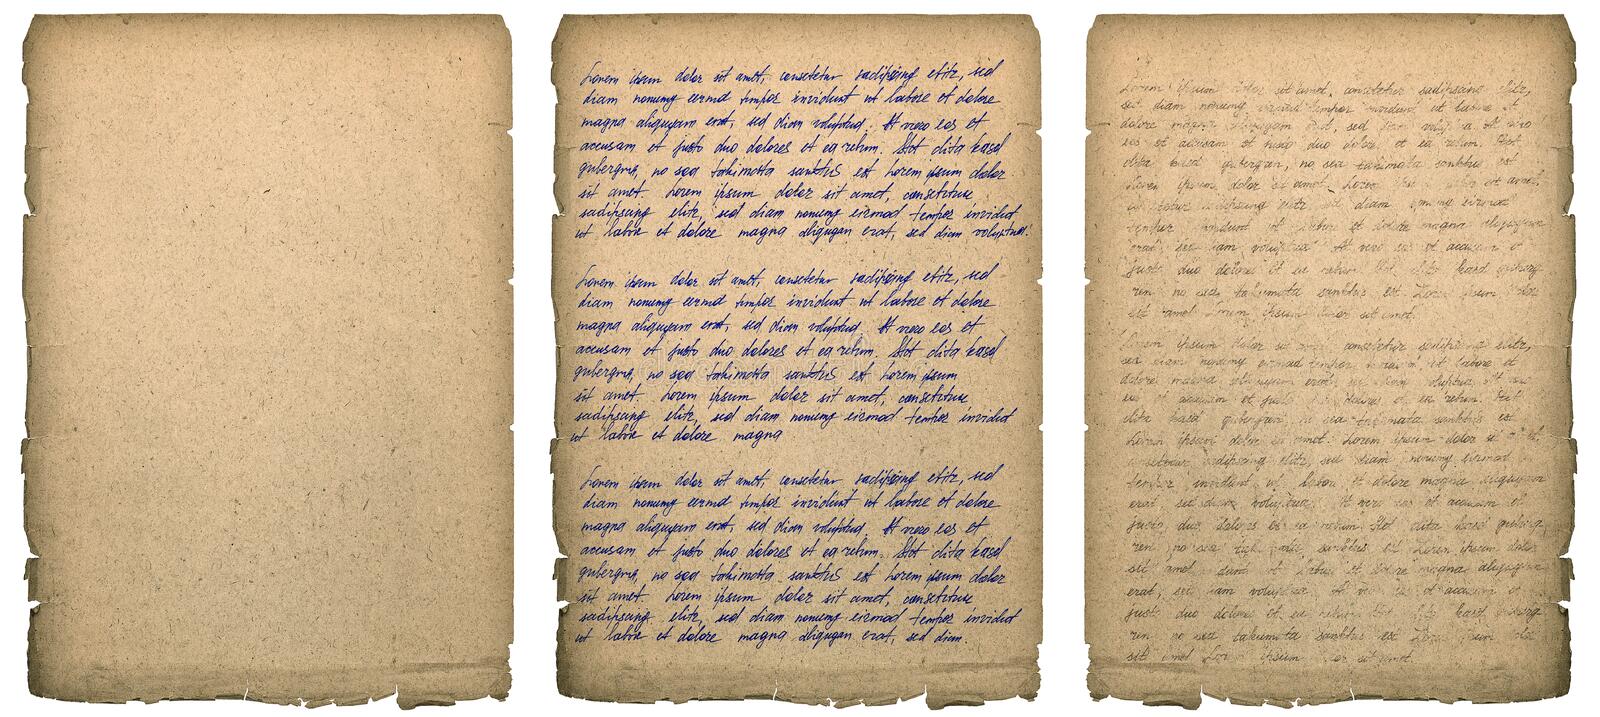 Lorem ipsum dolor sit amet, consetetur sadipscing elitr, sed
diam nonumy eirmod tempor invidunt ut labore et dolore
magna aliquyam erat, sed diam voluptud. At vero eos et
accusam et justo duo dolores et ea rebum. Stet clita kasd
gubergren, no sea takimata sanktus est Lorem ipsum dolor
sit amet. Lorem ipsum dolor sit amet, consetetur
sadipscing elitr, sed diam nonumy eirmod tempor invidut
ut labore et dolore magna aliquyan erat, sed diam voluptua.
Lorem ipsum dolor sit amet, consetetur sadipscing elitr, sed
diam nonumy eirmod tempor invidunt ut labore et dolore
magna aliquyam erat, sed diam voluptud. At vero eos et
accusam et justo duo dolores et ea rebum. Stet clita kasd
gubergren, no sea takimata sanktus est Lorem ipsum
sit amet. Lorem ipsum dolor sit amet, consetetur
sadipscing elitr, sed diam nonumy eirmod tempor invidut
ut labore et dolore magna
Lorem ipsum dolor sit amet, consetetur sadipscing elitr, sed
diam nonumy eirmod tempor invidunt ut labore et dolore
magna aliquyam erat, sed diam voluptud. At vero eos et
accusam et justo duo dolores et ea rebum. Stet clita kasd
gubergren, no sea takimata sanktus est Lorem ipsum dolor
sit amet. Lorem ipsum dolor sit amet, consetetur
sadipscing elitr, sed diam nonumy eirmod tempor invidut
ut labore et dolore magna aliquyan erat, sed diam.
Lorem ipsum dolor sit amet, consetetur sadipscing elitr,
sed diam nonumy tempor invidunt ut labore et
dolore magna sed At vero
eos et accusam et justo duo dolores et ea rebum. Stet
clita kasd gubergren, no sea takimata sanktus est
Lorem ipsum dolor amet. Lorem sit amet,
sadipscing elitr sed diam nonumy eirmod
tempor invidunt ut labore et dolore magna aliquyam
erat, sed diam voluptua. At vero eos et accusam et
justo duo dolores et ea rebum Stet clita kasd guberg
ren no sea takimata sanktus est Lorem ipsum dolor
sit amet Lorem ipsum dolor sit amet.
Lorem ipsum dolor sit consetetur sadipscing elitr,
sed diam nonumy eirmod tempor ut labore et
dolore magna aliquyam erat, sed diam voluptua. At
eos et accusam et justo dolores et ea rebum. Stet
clita kasd gubergren, no sea takimata sanktus est
Lorem ipsum dolor sit amet. Lorem ipsum dolor
sadipscing elitr, sed diam nonumy eirmod
tempor invidunt ut labore et dolore magna aliquyam
erat sed diam voluptua. At vero eos et accusam et
justo duo dolores et ea rebum Stet clita kasd guberg
ren no sea sanktus est Lorem ipsum dolor
sit amet ut labore et dolore magna aliquyam
erat, sed diam voluptua At vero et accusam et
justo duo dolores et ea rebum kasd guberg
ren no sea takimata sanktus est ipsum dolor
sit amet Lorem ipsum dolor sit amet.